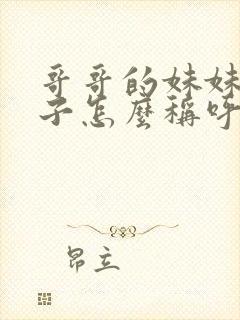 哥哥的妹妹
子怎麼稱呼
昂立